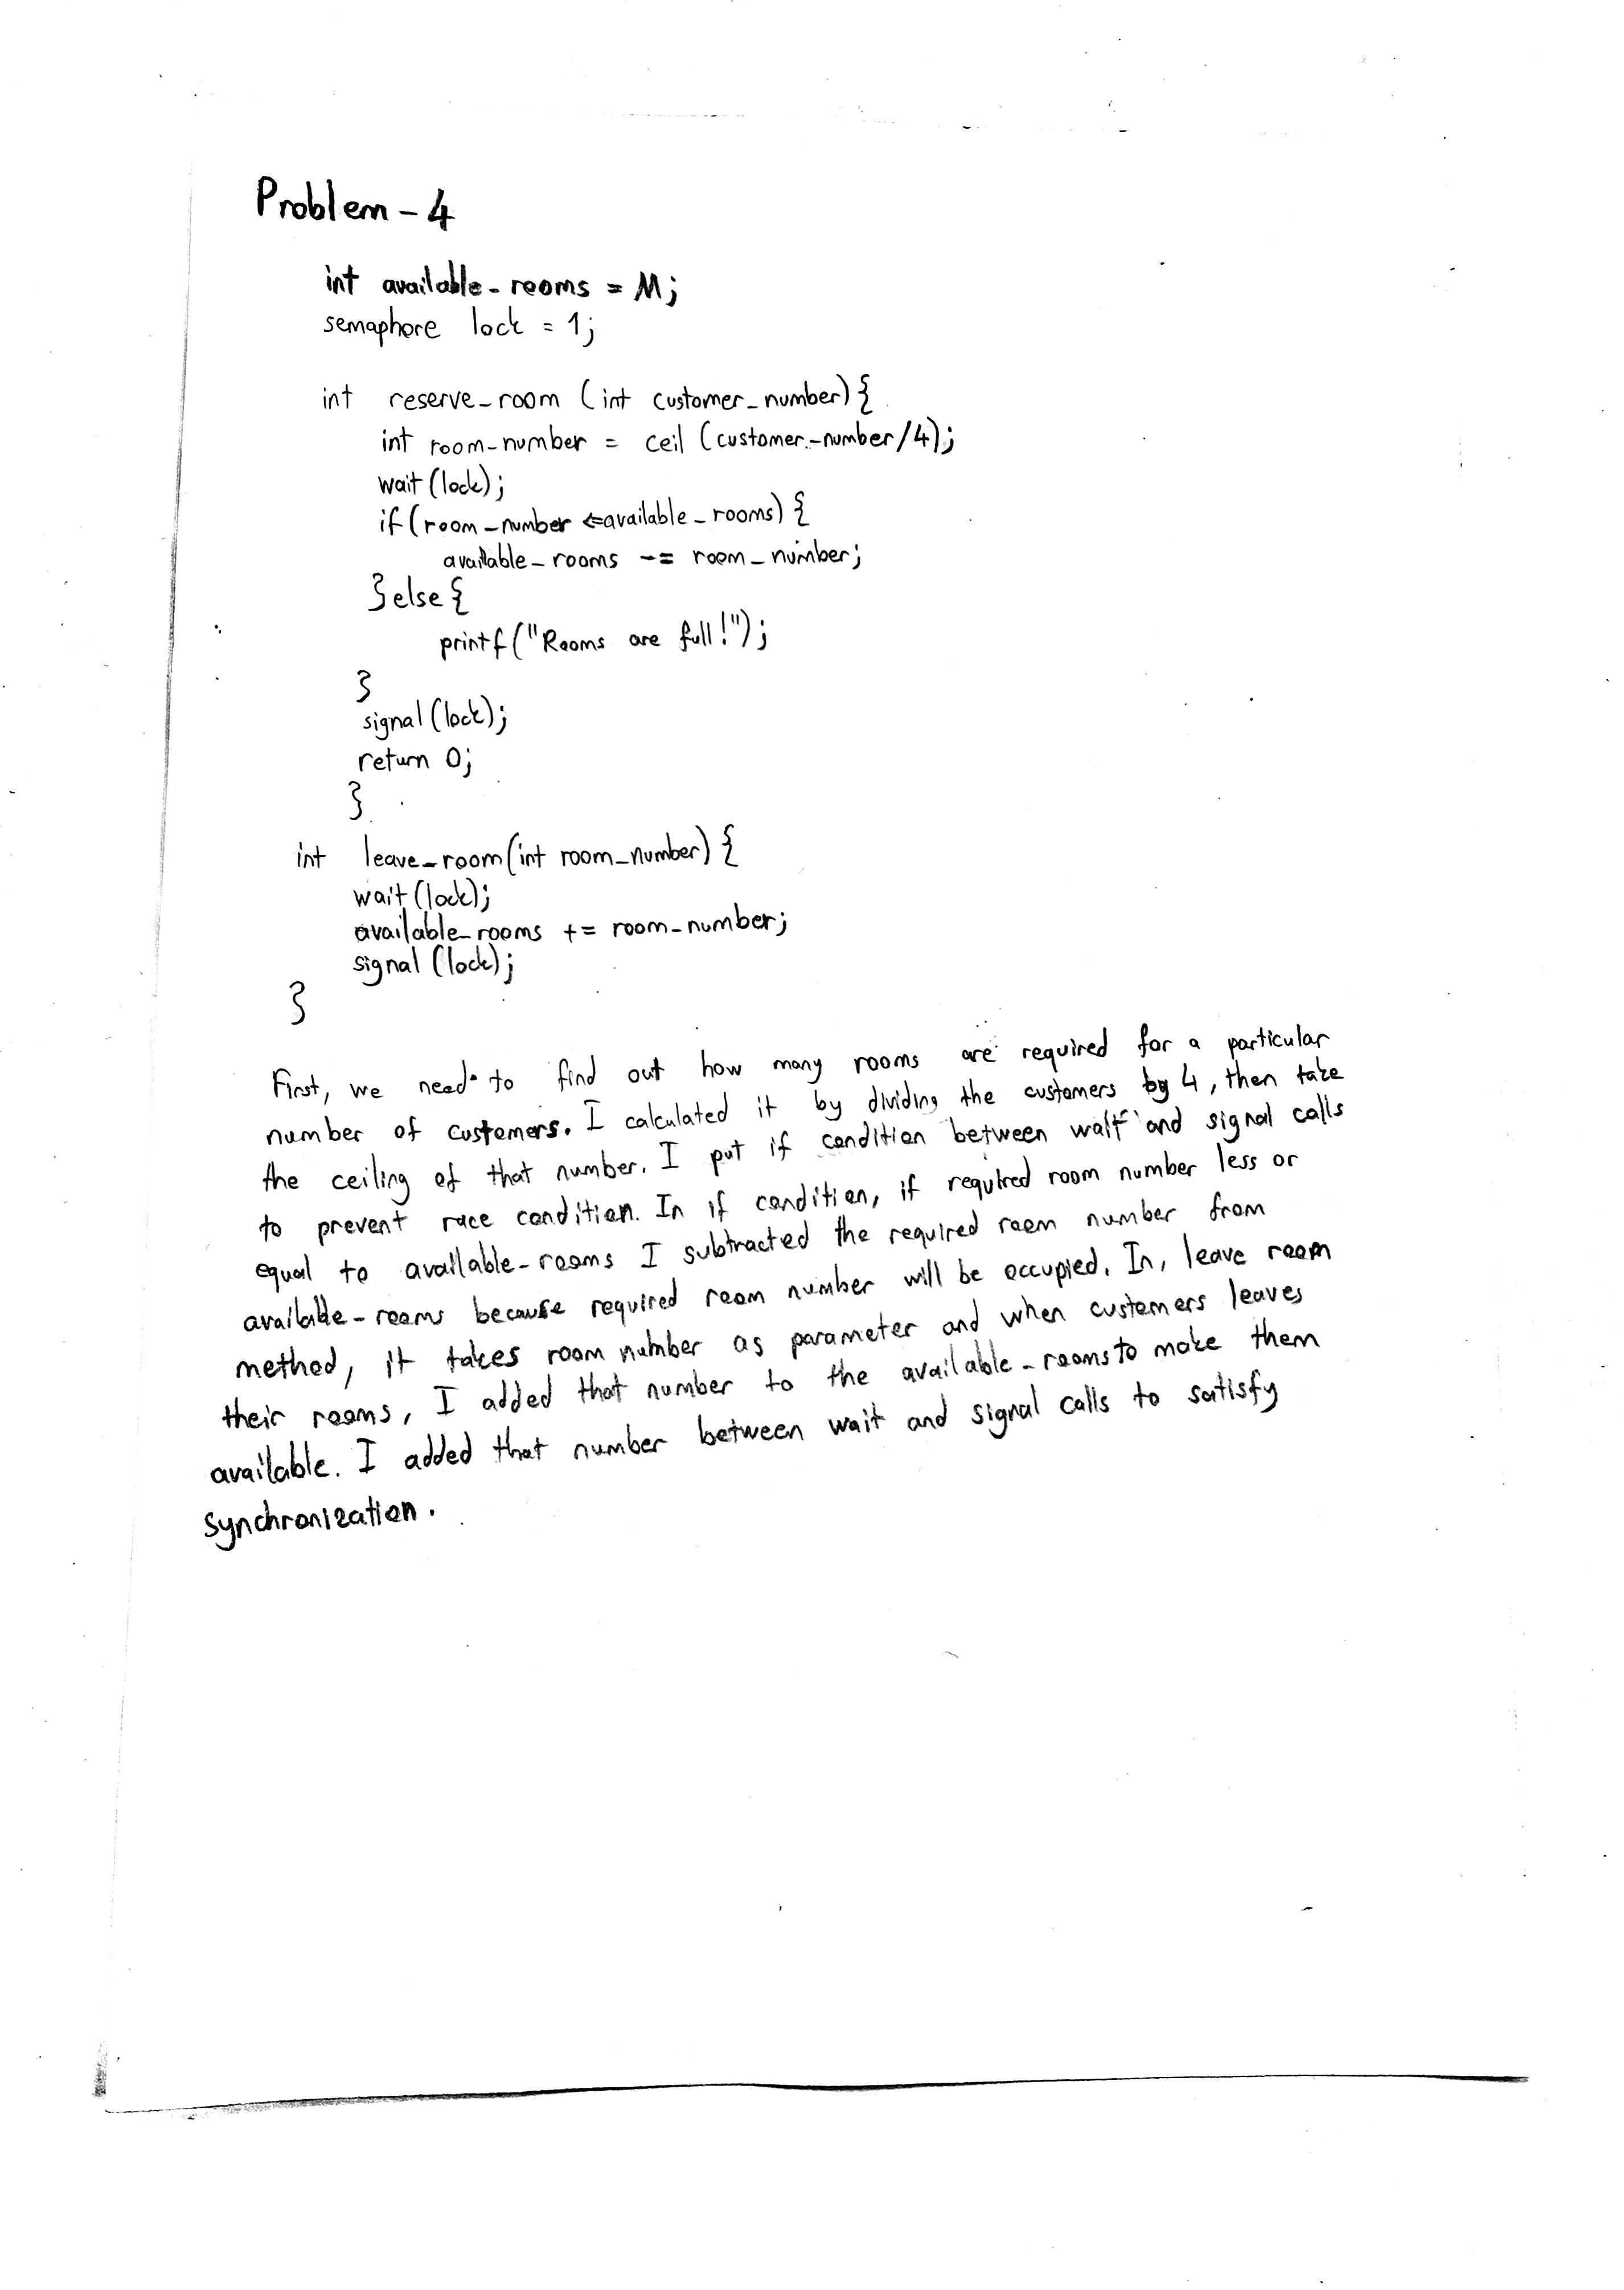 Problem - 4
int available_rooms = M;
semaphore lock = 1;
int reserve_room (int customer_number) {
int room_number = ceil (customer_number/4);
wait (lock);
if (room_number <= available_rooms) {
available_rooms -= room_number;
} else {
printf ("Rooms are full!");
}
signal (lock);
return 0;
}
int leave_room (int room_number) {
wait (lock);
available_rooms += room_number;
signal (lock);
}
First, we need to find out how many rooms are required for a particular
number of customers. I calculated it by dividing the customers by 4, then take
the ceiling of that number. I put if condition between wait and signal calls
to prevent race condition. In if condition, if required room number less or
equal to available-rooms I subtracted the required room number from
available-rooms because required room number will be occupied. In, leave room
method, it takes room number as parameter and when customers leaves
their rooms, I added that number to the available-rooms to make them
available. I added that number between wait and signal calls to satisfy
synchronization.